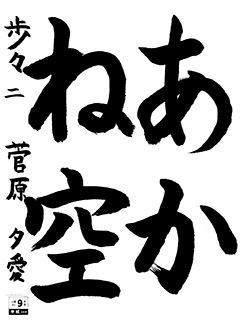 あか
ね空
歩々二 菅原夕愛
9